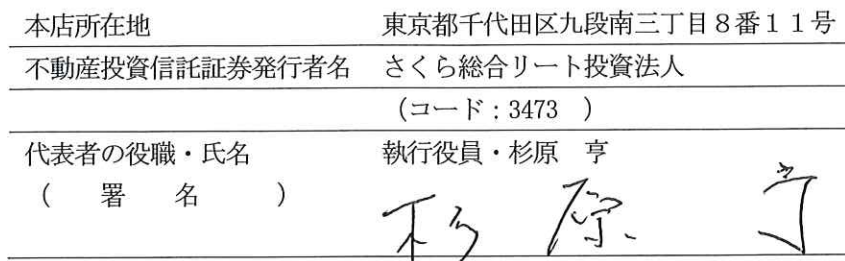 本店所在地 東京都千代田区九段南三丁目8番11号
不動産投資信託証券発行者名 さくら総合リート投資法人
(コード:3473 )
代表者の役職・氏名 執行役員・杉原 亨
( 署 名 )
杉 原 亨